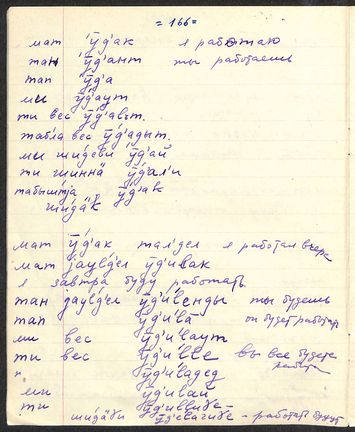 =166=
мат ӱд'ак я работаю
тан ӱд'ант ты работаешь
тап ӱд'а
ми ӱд'аут
ти вес ӱд'авт.
табла вес ӱд'адыт.
ми шидеви ӱд'ай
ти шиннӓ ӱд'али
табыштја ӱд'ак
шидӓк
мат ӱд'ак талдел я работал вчера
мат јаувдел ӱд'ивак
я завтра буду работать
тан јаувдел ӱд'ивенды ты будешь
тап ӱд'ивӓ он будет работать
ми вес ӱд'иваут
ти вес ӱд'ивве вы все будете
работать
ӱд'ивадед
ми ӱд'ивай
ти
шидӓди работать будут